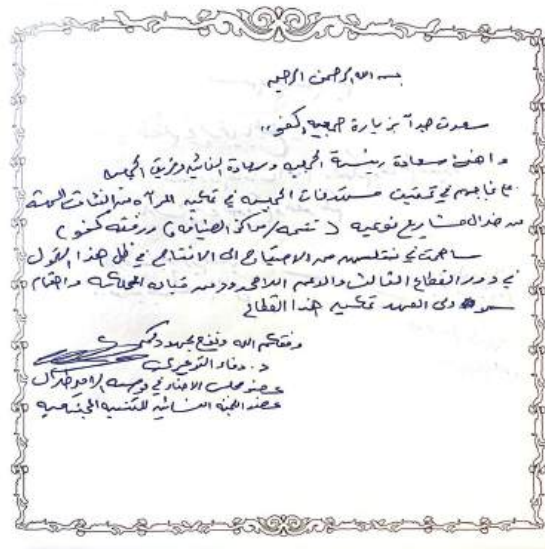 بسم الله الرحمن الرحيم
سعدت جداً بزيارة جمعية كفو،،
واهنئ سعادة رئيسة الجمعية وسعادة النائبة وفريق الجمعية
على نجاحهم في تحقيق مستهدفات الجمعية في تمكين المرأة من الفئات
من خلال مشاريع نوعية ( مراكز الضيافة كفو )
ساهمت في نقلهن من الاحتياج الى الانتاج في ظل هذا التحول
في دور القطاع الثالث والدعم اللامحدود من قبل المملكة واهتمام
سمو ولي العهد تمكين هذا القطاع
وفقكم الله ونفع بجهودكم
د. وفاء التويجري
عضو مجلس الامناء في مؤسسة
عضو اللجنة النسائية للتنمية المجتمعية